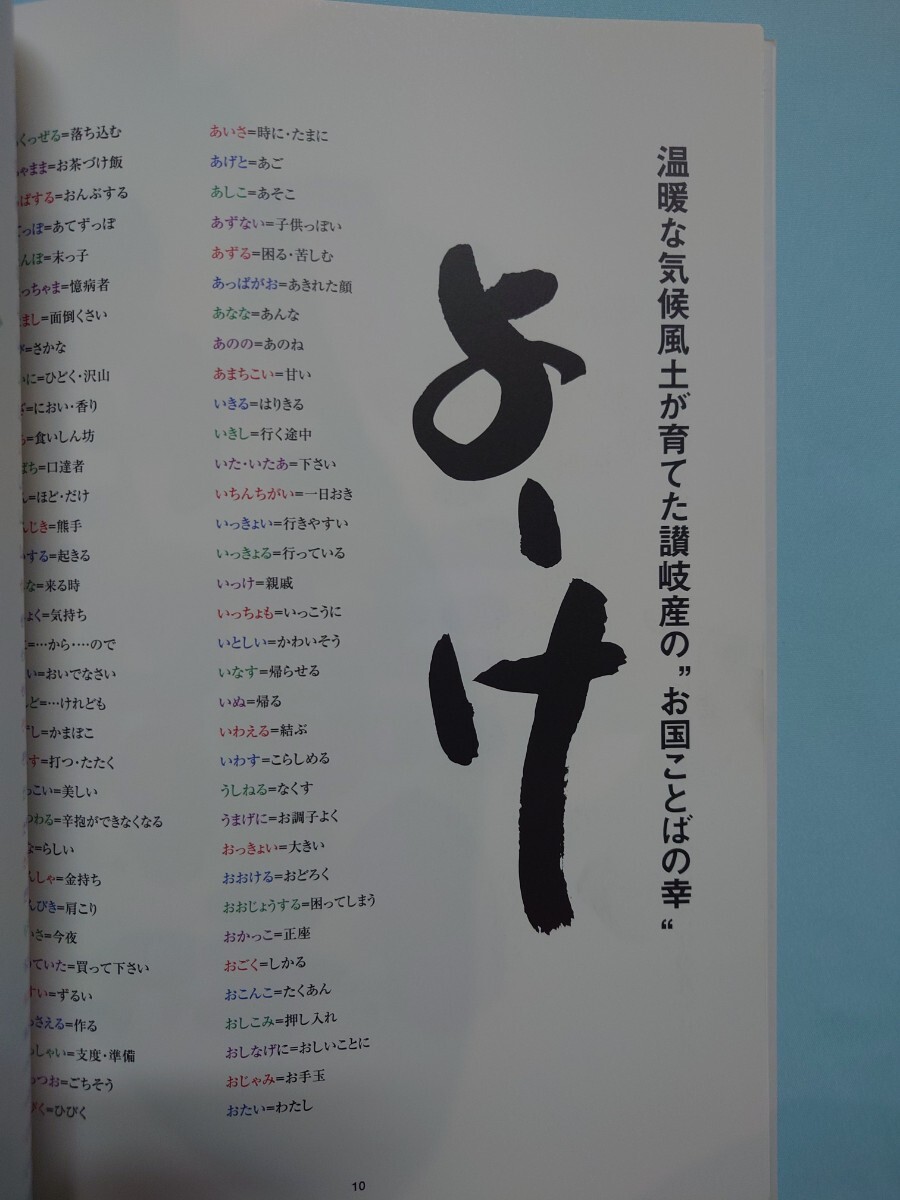 温暖な気候風土が育てた讃岐産の”お国ことばの幸“
よーけ
あいさ=時に・たまに
あげと=あご
あしこ=あそこ
あずない=子供っぽい
あずる=困る・苦しむ
あっぱがお=あきれた顔
あなな=あんな
あのの=あのね
あまちこい=甘い
いきる=はりきる
いきし=行く途中
いた・いたあ=下さい
いちんちがい=一日おき
いっきょい=行きやすい
いっきょる=行っている
いっけ=親戚
いっちょも=いっこうに
いとしい=かわいそう
いなす=帰らせる
いぬ=帰る
いわえる=結ぶ
いわす=こらしめる
うしねる=なくす
うまげに=お調子よく
おっきょい=大きい
おおける=おどろく
おおじょうする=困ってしまう
おかっこ=正座
おごく=しかる
おこんこ=たくあん
おしこみ=押し入れ
おしなげに=おしいことに
おじゃみ=お手玉
おたい=わたし
くっぜる=落ち込む
ゃまま=お茶づけ飯
ぱする=おんぶする
てっぽ=あてずっぽ
んぼ=末っ子
っちゃま=憶病者
まし=面倒くさい
=さかな
いに=ひどく・沢山
=におい・香り
=食いしん坊
ばち=口達者
ん=ほど・だけ
んじき=熊手
する=起きる
な=来る時
ょく=気持ち
=…から・…ので
い=おいでなさい
ど=…けれども
ずし=かまぼこ
す=打つ・たたく
っこい=美しい
つわる=辛抱ができなくなる
な=らしい
んしゃ=金持ち
んびき=肩こり
いさ=今夜
ていた=買って下さい
すい=ずるい
さえる=作る
しゃい=支度・準備
っつお=ごちそう
びく=ひびく
10